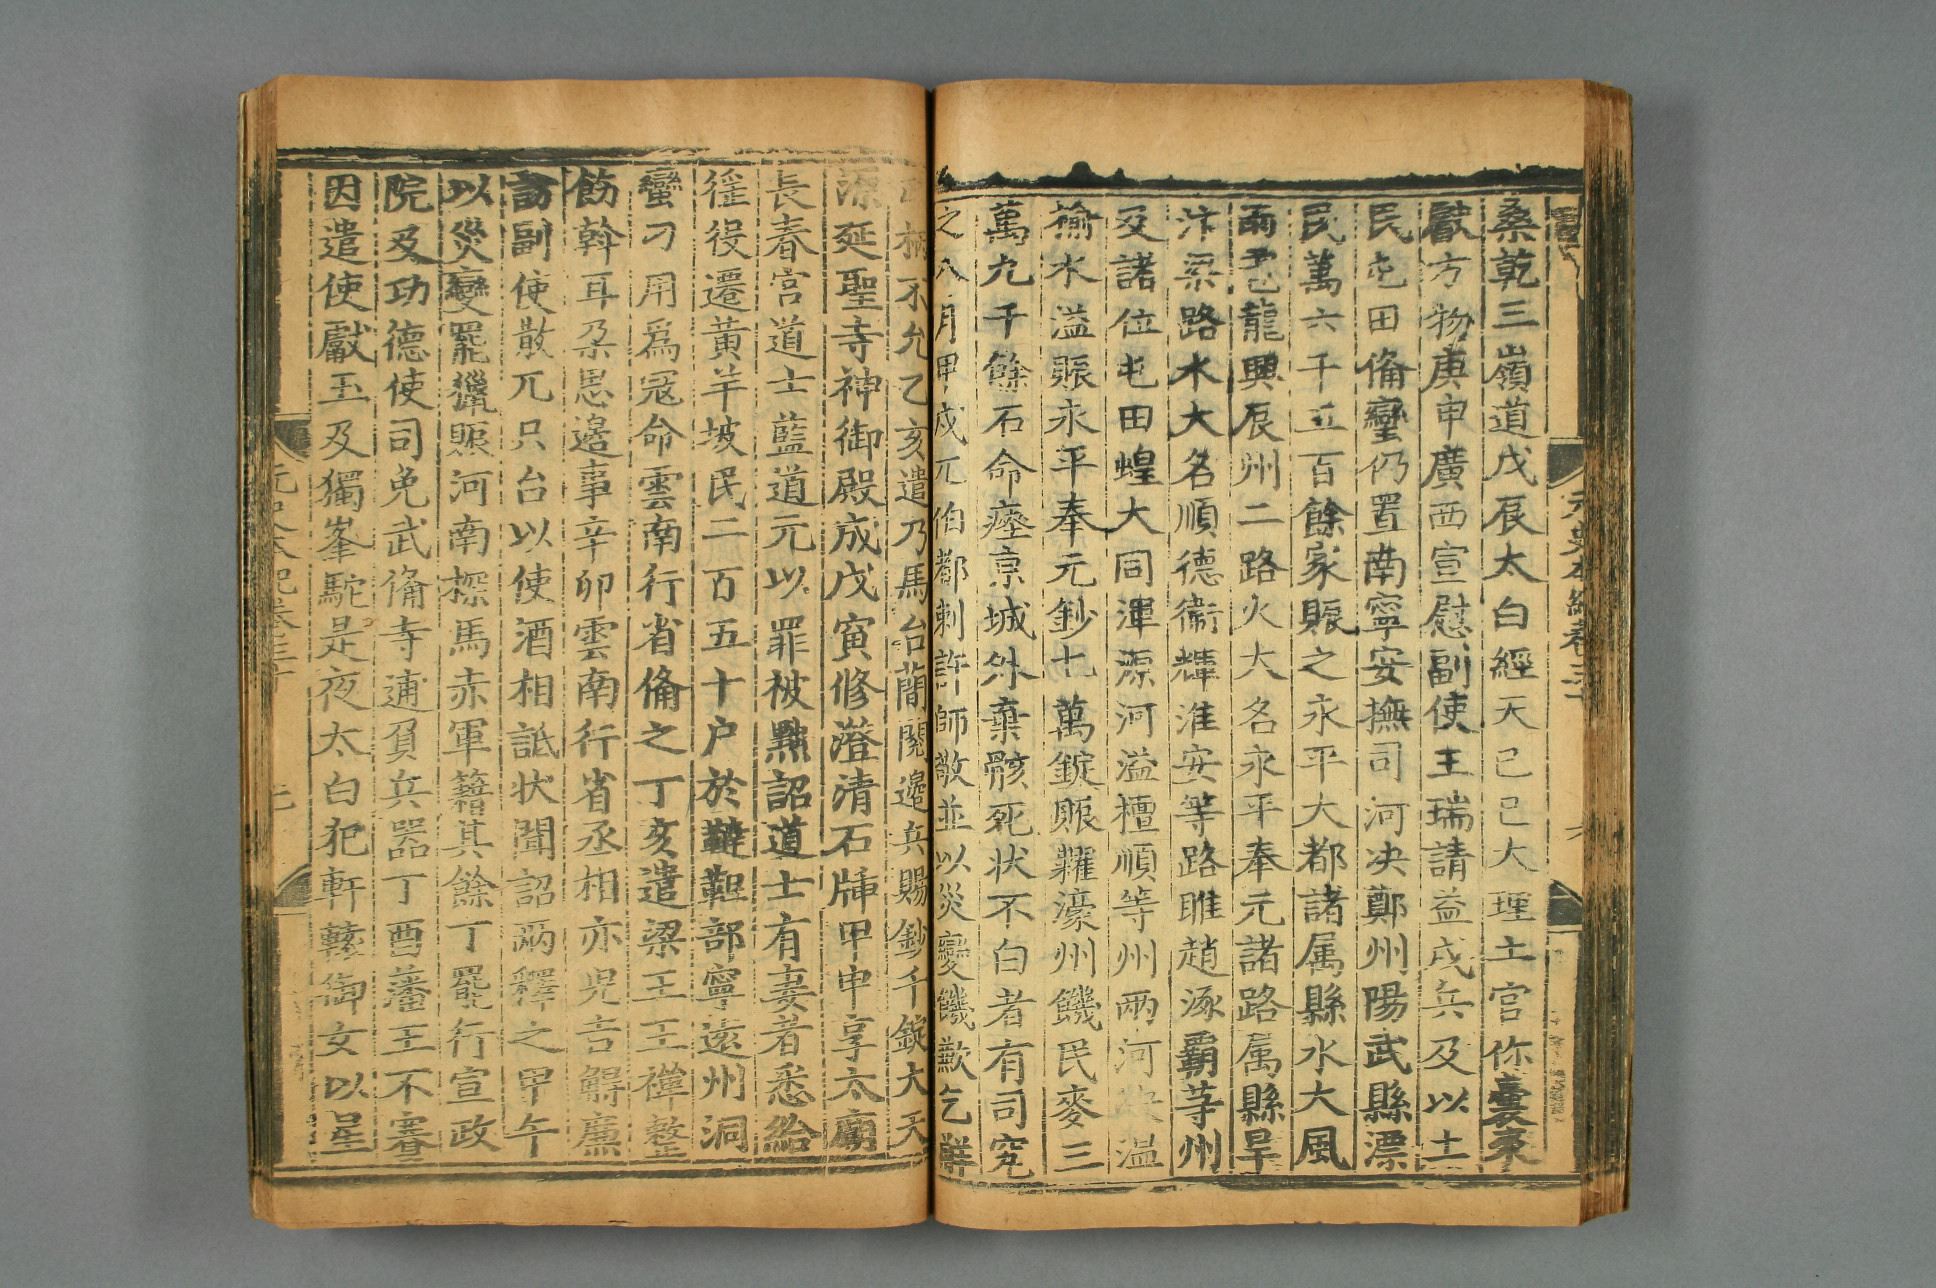 元史本紀卷三十
桑乾三嶺道戊辰太白經天己巳大理土官你囊來
獻方物庚申廣西宣慰副使王瑞請益戍兵及以土
民屯田備蠻仍置南寧安撫司河决鄭州陽武縣漂
民萬六千五百餘家賑之永平大都諸属縣水大風
雨雹龍興辰州二路火大名永平奉元諸路属縣旱
汴梁路水大名順德衛輝淮安等路睢趙涿霸等州
及諸位屯田蝗大同渾源河溢檀順等州兩河决温
榆水溢賑永平奉元鈔七萬錠賑糶濠州饑民麥三
萬九千餘石命瘞京城外棄骸死状不白者有司究
之八月甲戌兀伯都剌許師敬並以災變饑歉乞觧
政柄不允乙亥遣乃馬台蕳閱邊兵賜鈔千錠大天
源延聖寺神御殿成戊寅修澄清石牐甲申享太廟
長春宮道士藍道元以罪被黥詔道士有妻者悉給
徭役遷黄羊坡民二百五十户於韃靼部寧遠州洞
蠻刁用爲寇命雲南行省備之丁亥遣梁王王禅整
飭斡耳朶思邉事辛卯雲南行省丞相亦兒吉䚟㢘
訪副使散兀只台以使酒相詆状聞詔兩釋之甲午
以災變罷獵賑河南探馬赤軍籍其餘丁罷行宣政
院及功德使司免武備寺逋負兵器丁酉藩王不賽
因遣使獻玉及獨峯駝是夜太白犯軒轅御女以星
元史本紀卷三十